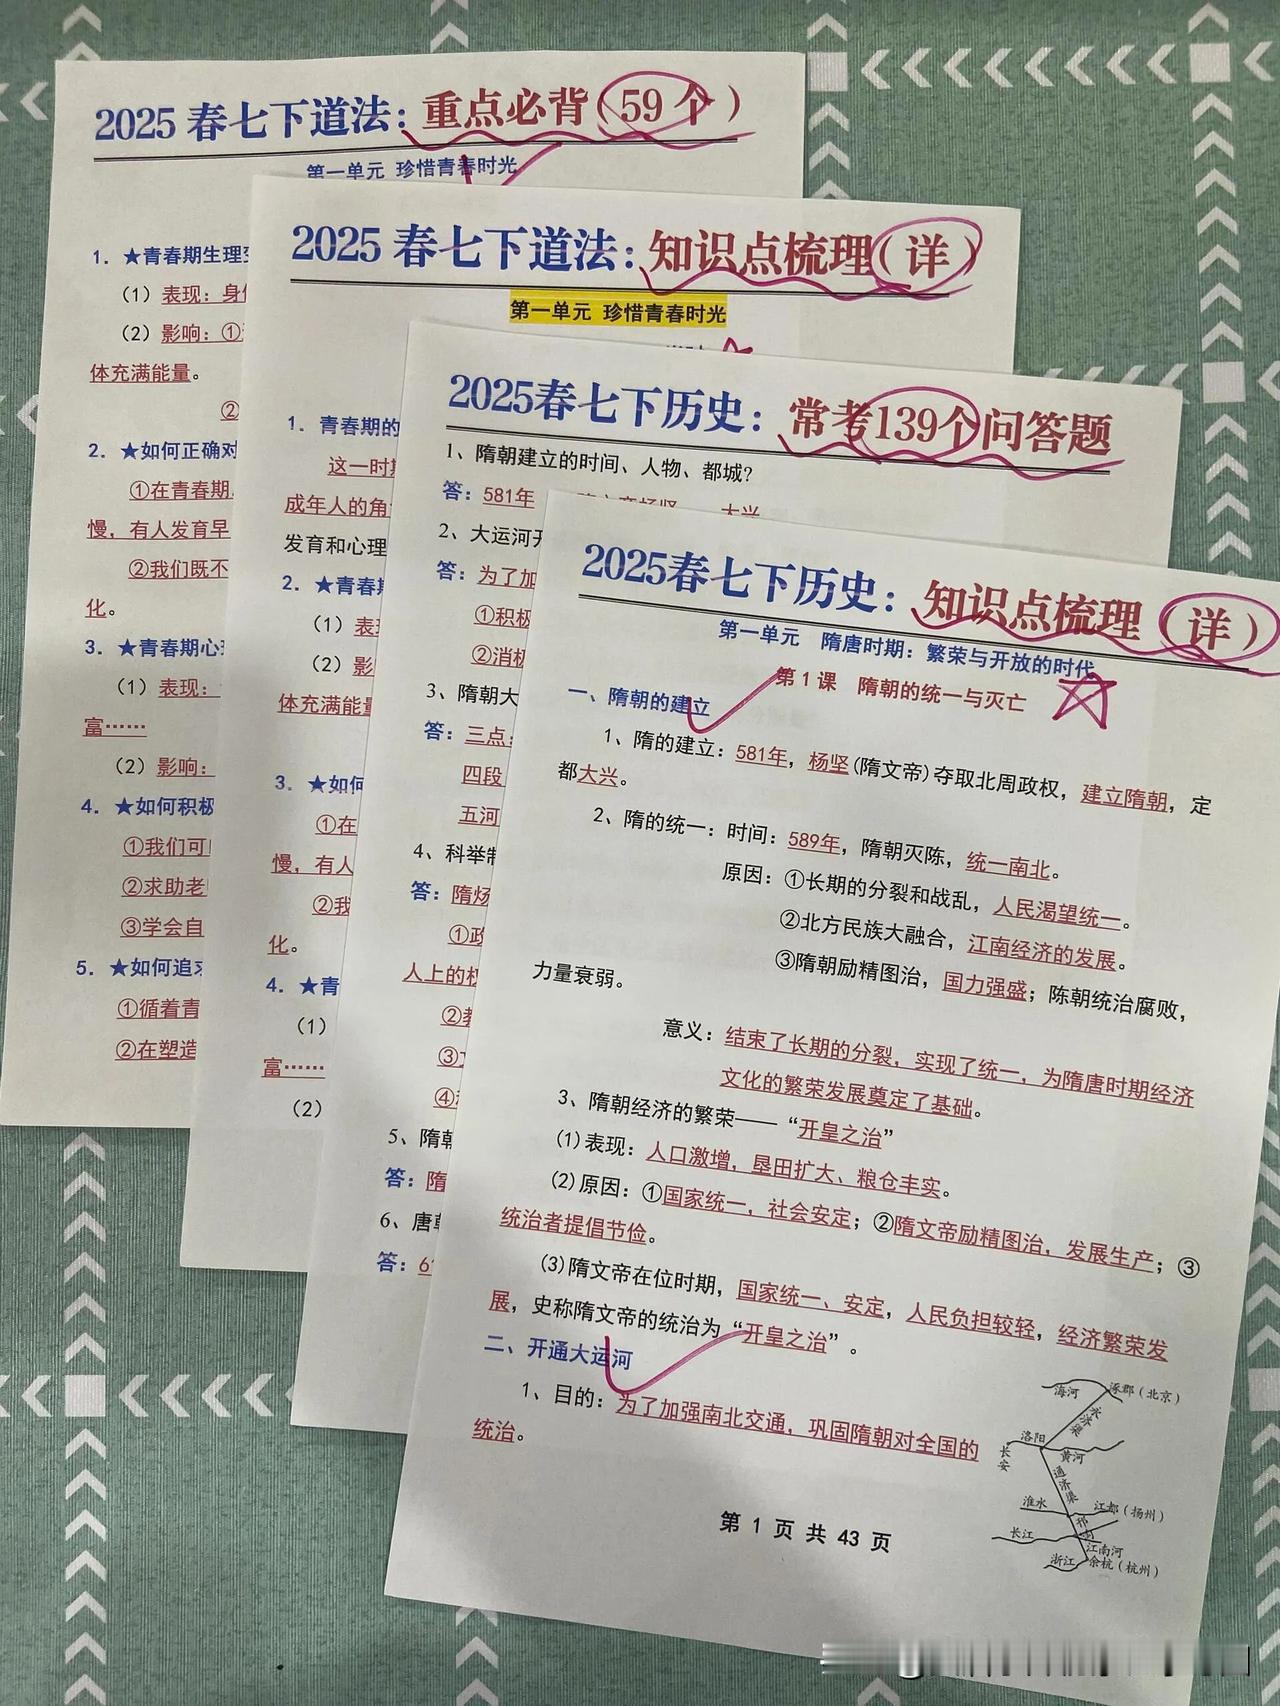 2025 春七下道法：重点必背（59 个）
第一单元 珍惜青春时光
1. ★青春期生理变
（1）表现：身
（2）影响：①
体充满能量。
②
2. ★如何正确对
①在青春期
慢，有人发育早
②我们既不
化。
3. ★青春期心
（1）表现：
富……
（2）影响：
4. ★如何积极
①我们可
②求助老
③学会自
5. ★如何追求
①循着青
②在塑造
2025 春七下道法：知识点梳理（详）
第一单元 珍惜青春时光
1. 青春期的
这一时期
成年人的角
发育和心理
2. ★青春期
（1）表
（2）影
体充满能量
3. ★如何
①在
慢，有人
②我
化。
4. ★青
（1）
富……
（2）
2025春七下历史：常考139个问答题
1、隋朝建立的时间、人物、都城？
答：581年 隋文帝杨坚 大兴
2、大运河开
答：为了加
①积极
②消极
3、隋朝大
答：三点：
四段
五河
4、科举制
答：隋炀
①政
人上的权
②教
③
④
5、隋朝
答：隋
6、唐朝
答：6
2025春七下历史：知识点梳理（详）
第一单元 隋唐时期：繁荣与开放的时代
第 1 课 隋朝的统一与灭亡
一、隋朝的建立
1、隋的建立：581年，杨坚(隋文帝)夺取北周政权，建立隋朝，定
都大兴。
2、隋的统一：时间：589年，隋朝灭陈，统一南北。
原因：①长期的分裂和战乱，人民渴望统一。
②北方民族大融合，江南经济的发展。
③隋朝励精图治，国力强盛；陈朝统治腐败，
力量衰弱。
意义：结束了长期的分裂，实现了统一，为隋唐时期经济
文化的繁荣发展奠定了基础。
3、隋朝经济的繁荣——“开皇之治”
(1)表现：人口激增，垦田扩大、粮仓丰实。
(2)原因：①国家统一，社会安定；②隋文帝励精图治，发展生产；③
统治者提倡节俭。
(3)隋文帝在位时期，国家统一、安定，人民负担较轻，经济繁荣发
展，史称隋文帝的统治为“开皇之治”。
二、开通大运河
1、目的：为了加强南北交通，巩固隋朝对全国的
统治。
海河 涿郡（北京）
永济渠
洛阳
长安
黄河
通济渠
淮水 江都（扬州）
邗沟
长江
江南河
浙江 余杭（杭州）
第 1 页 共 43 页